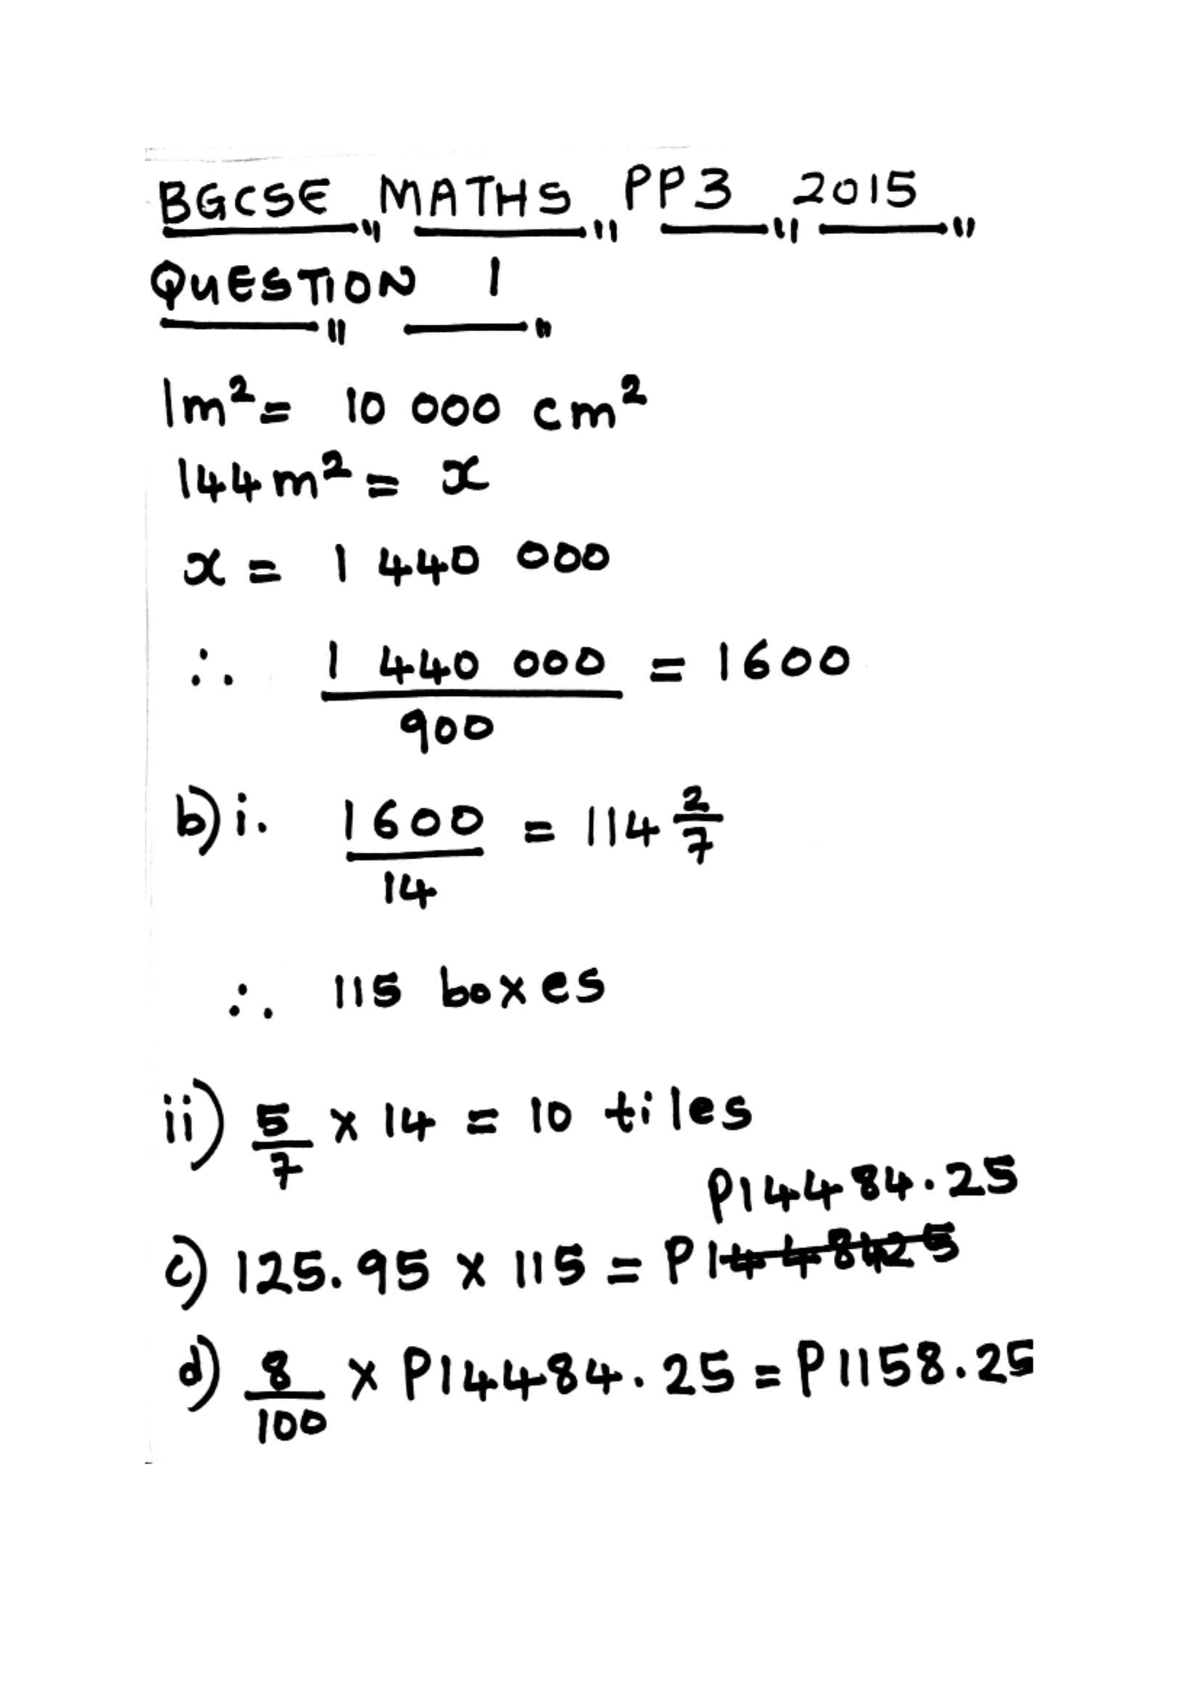 BGCSE MATHS PP3 2015
QUESTION 1
1m² = 10 000 cm²
144m² = x
x = 1 440 000
∴ 1 440 000 / 900 = 1600
b) i. 1600 / 14 = 114 2/7
∴ 115 boxes
ii) 5/7 × 14 = 10 tiles
P14484.25
c) 125.95 × 115 = P1448425
d) 8/100 × P14484.25 = P1158.25